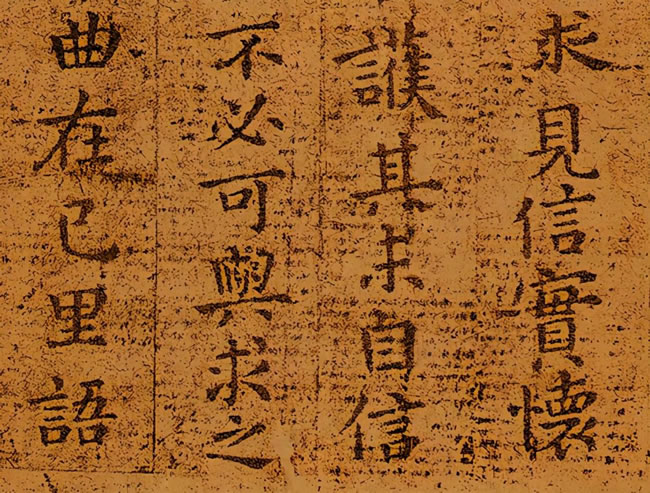 求見信實懷
護其未自信
不必可與求之
曲在己里語